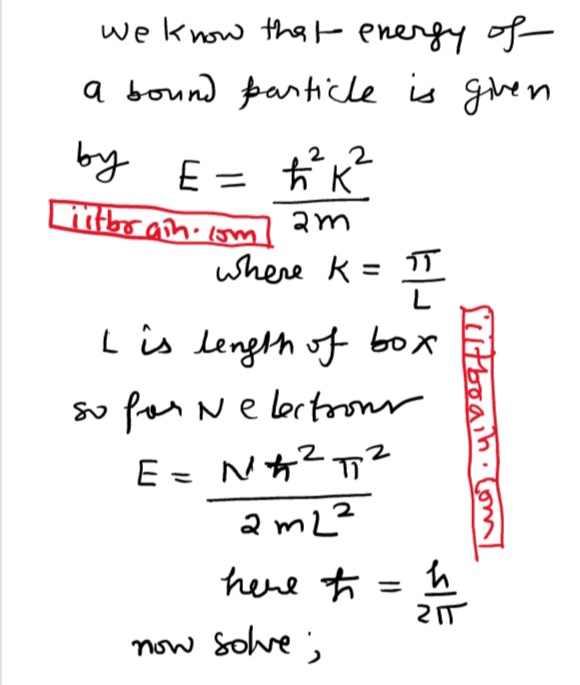 we know that energy of
a bound particle is given
by E = ħ²K² / 2m
iitbrain.com
where K = π / L
L is length of box
iitbrain.com
so for N electrons
E = Nħ²π² / 2mL²
here ħ = h / 2π
now solve;